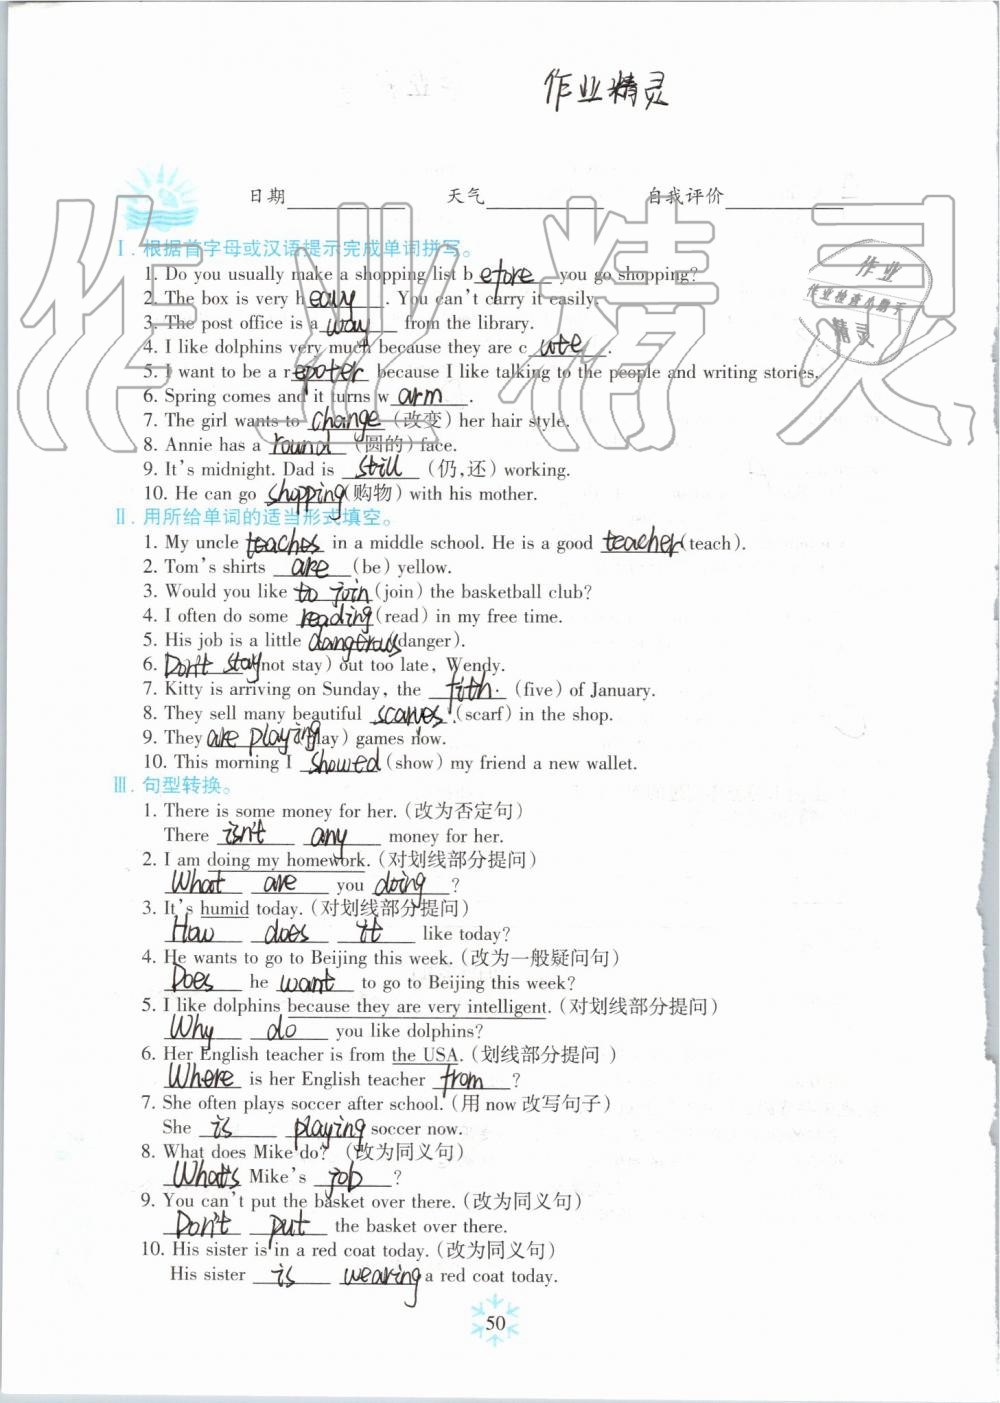 作业精灵
日期 天气 自我评价
Ⅰ. 根据首字母或汉语提示完成单词拼写。
1. Do you usually make a shopping list before you go shopping?
2. The box is very heavy. You can't carry it easily.
3. The post office is a way from the library.
4. I like dolphins very much because they are cute.
5. I want to be a repoter because I like talking to the people and writing stories.
6. Spring comes and it turns warm.
7. The girl wants to change (改变) her hair style.
8. Annie has a round (圆的) face.
9. It's midnight. Dad is still (仍,还) working.
10. He can go shopping (购物) with his mother.
Ⅱ. 用所给单词的适当形式填空。
1. My uncle teaches in a middle school. He is a good teacher (teach).
2. Tom's shirts are (be) yellow.
3. Would you like to join (join) the basketball club?
4. I often do some reading (read) in my free time.
5. His job is a little dangerous (danger).
6. Don't stay (not stay) out too late, Wendy.
7. Kitty is arriving on Sunday, the fifth (five) of January.
8. They sell many beautiful scarves (scarf) in the shop.
9. They are playing (play) games now.
10. This morning I showed (show) my friend a new wallet.
Ⅲ. 句型转换。
1. There is some money for her. (改为否定句)
There isn't any money for her.
2. I am doing my homework. (对划线部分提问)
What are you doing?
3. It's humid today. (对划线部分提问)
How does it like today?
4. He wants to go to Beijing this week. (改为一般疑问句)
Does he want to go to Beijing this week?
5. I like dolphins because they are very intelligent. (对划线部分提问)
Why do you like dolphins?
6. Her English teacher is from the USA. (划线部分提问 )
Where is her English teacher from?
7. She often plays soccer after school. (用 now 改写句子)
She is playing soccer now.
8. What does Mike do? (改为同义句)
What's Mike's job?
9. You can't put the basket over there. (改为同义句)
Don't put the basket over there.
10. His sister is in a red coat today. (改为同义句)
His sister is wearing a red coat today.
50
作业精灵
作业
作业检查小帮手
精灵